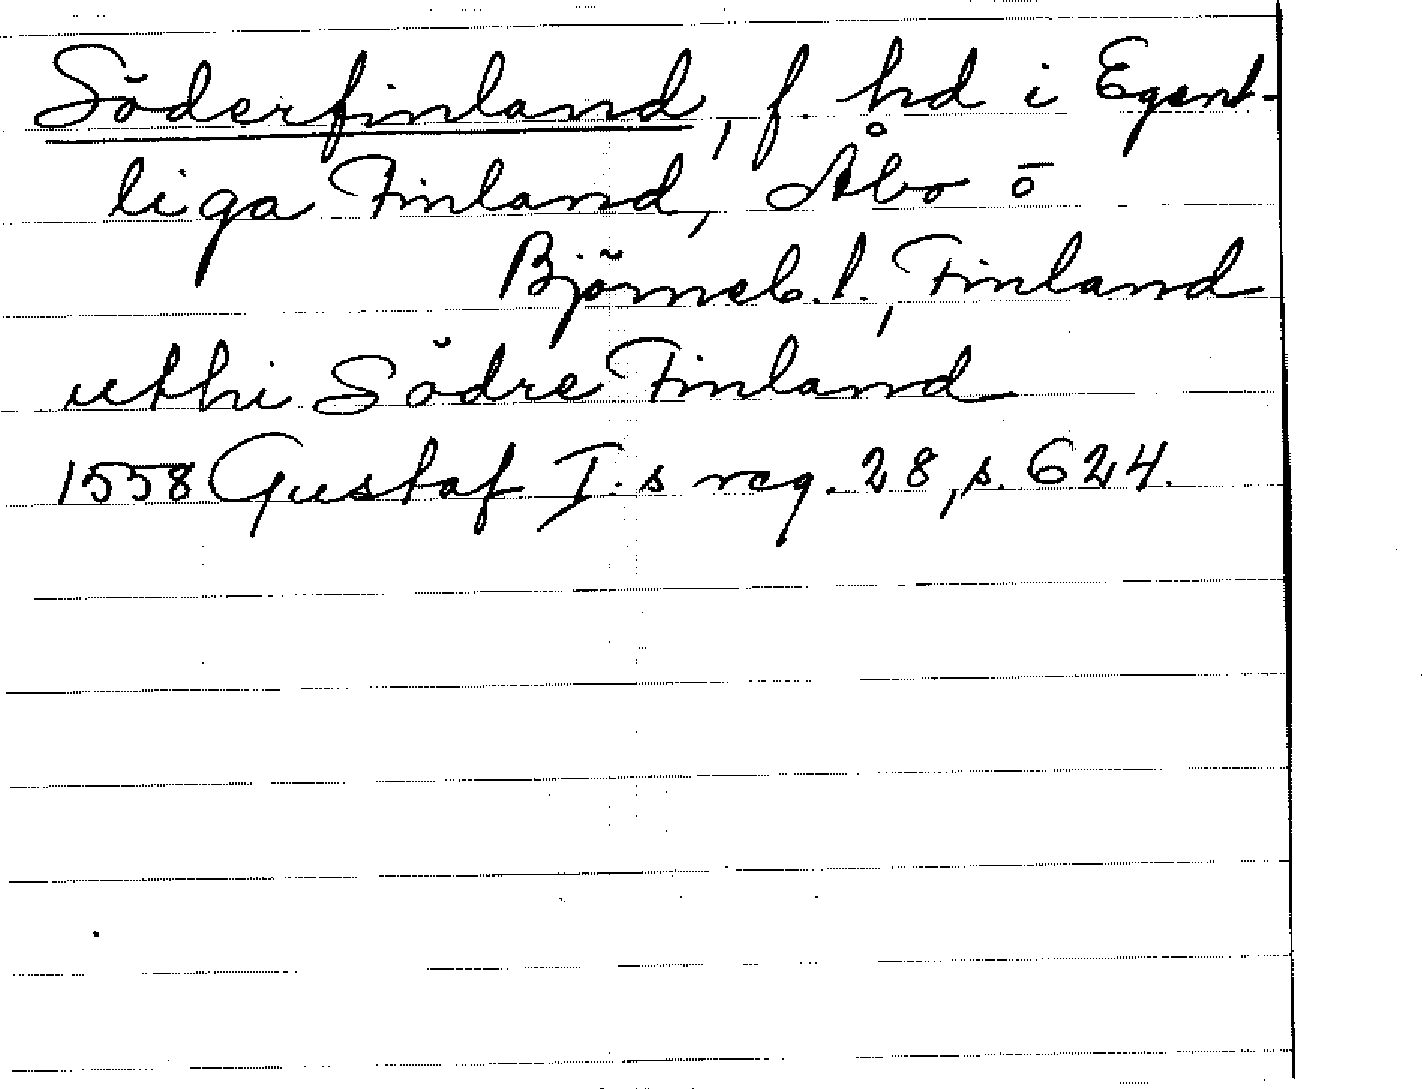 Söderfinland, f. hd i Egent-
liga Finland, Åbo o
Björneb. l., Finland
utthi Södre Finland
1558 Gustaf I:s reg. 28, s. 624.